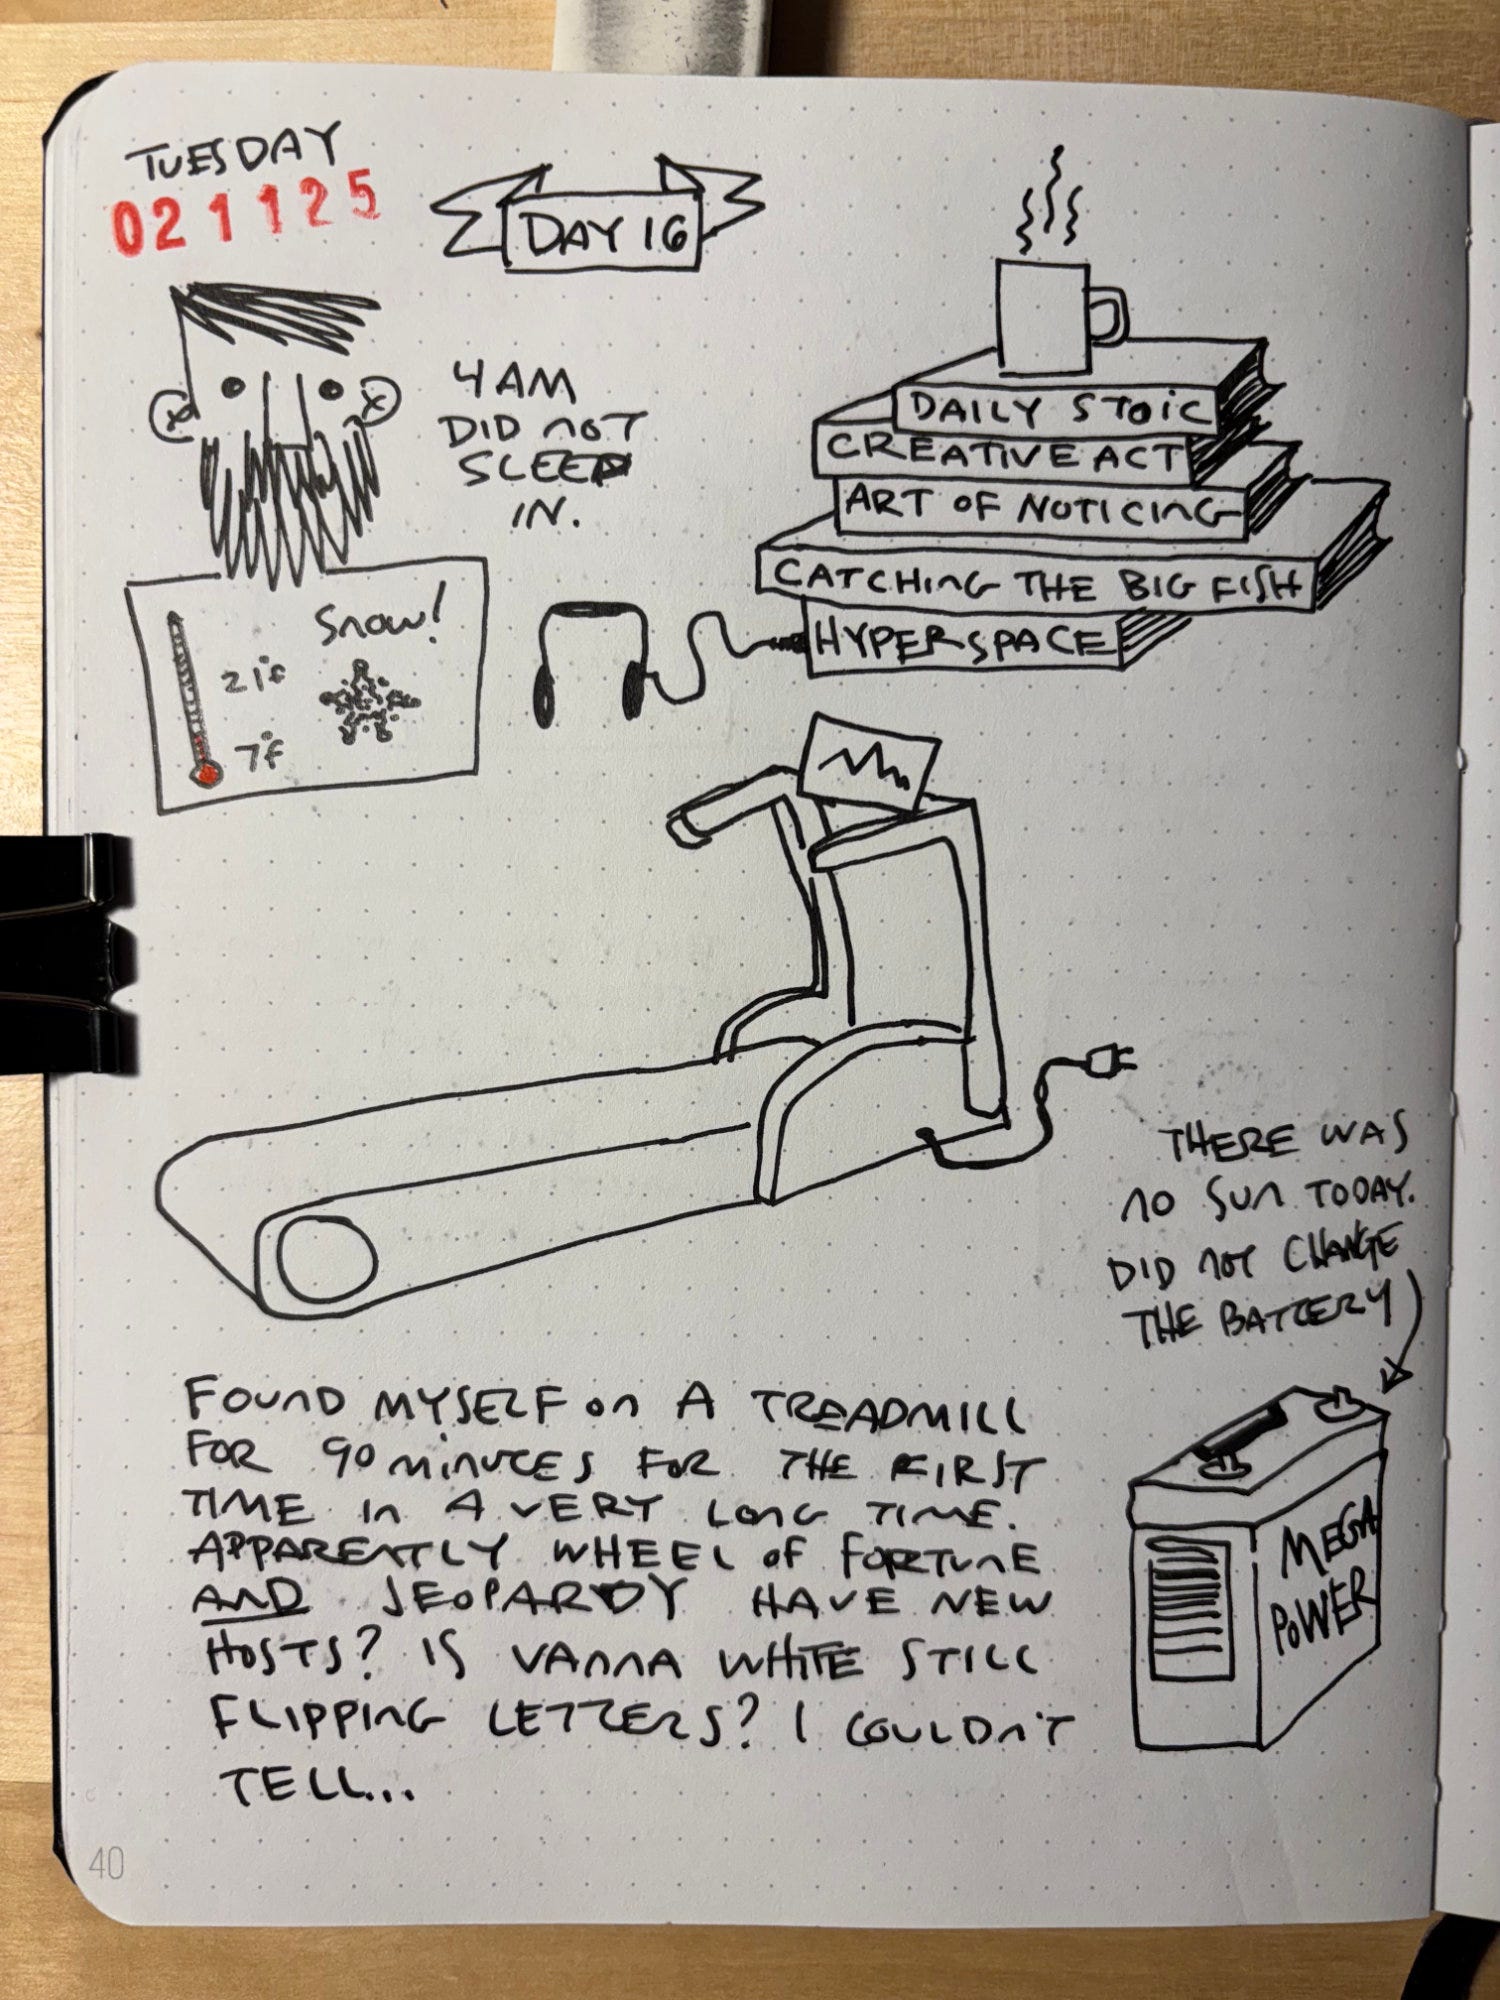 TUESDAY
021125
DAY 16
4 AM
DID NOT
SLEEP
IN.
SNOW!
21°F
7°F
DAILY STOIC
CREATIVE ACT
ART OF NOTICING
CATCHING THE BIG FISH
HYPERSPACE
THERE WAS
NO SUN TODAY.
DID NOT CHANGE
THE BATTERY
MEGA
POWER
FOUND MYSELF ON A TREADMILL
FOR 90 MINUTES FOR THE FIRST
TIME IN A VERY LONG TIME.
APPARENTLY WHEEL OF FORTUNE
AND JEOPARDY HAVE NEW
HOSTS? IS VANNA WHITE STILL
FLIPPING LETTERS? I COULDN'T
TELL...
40